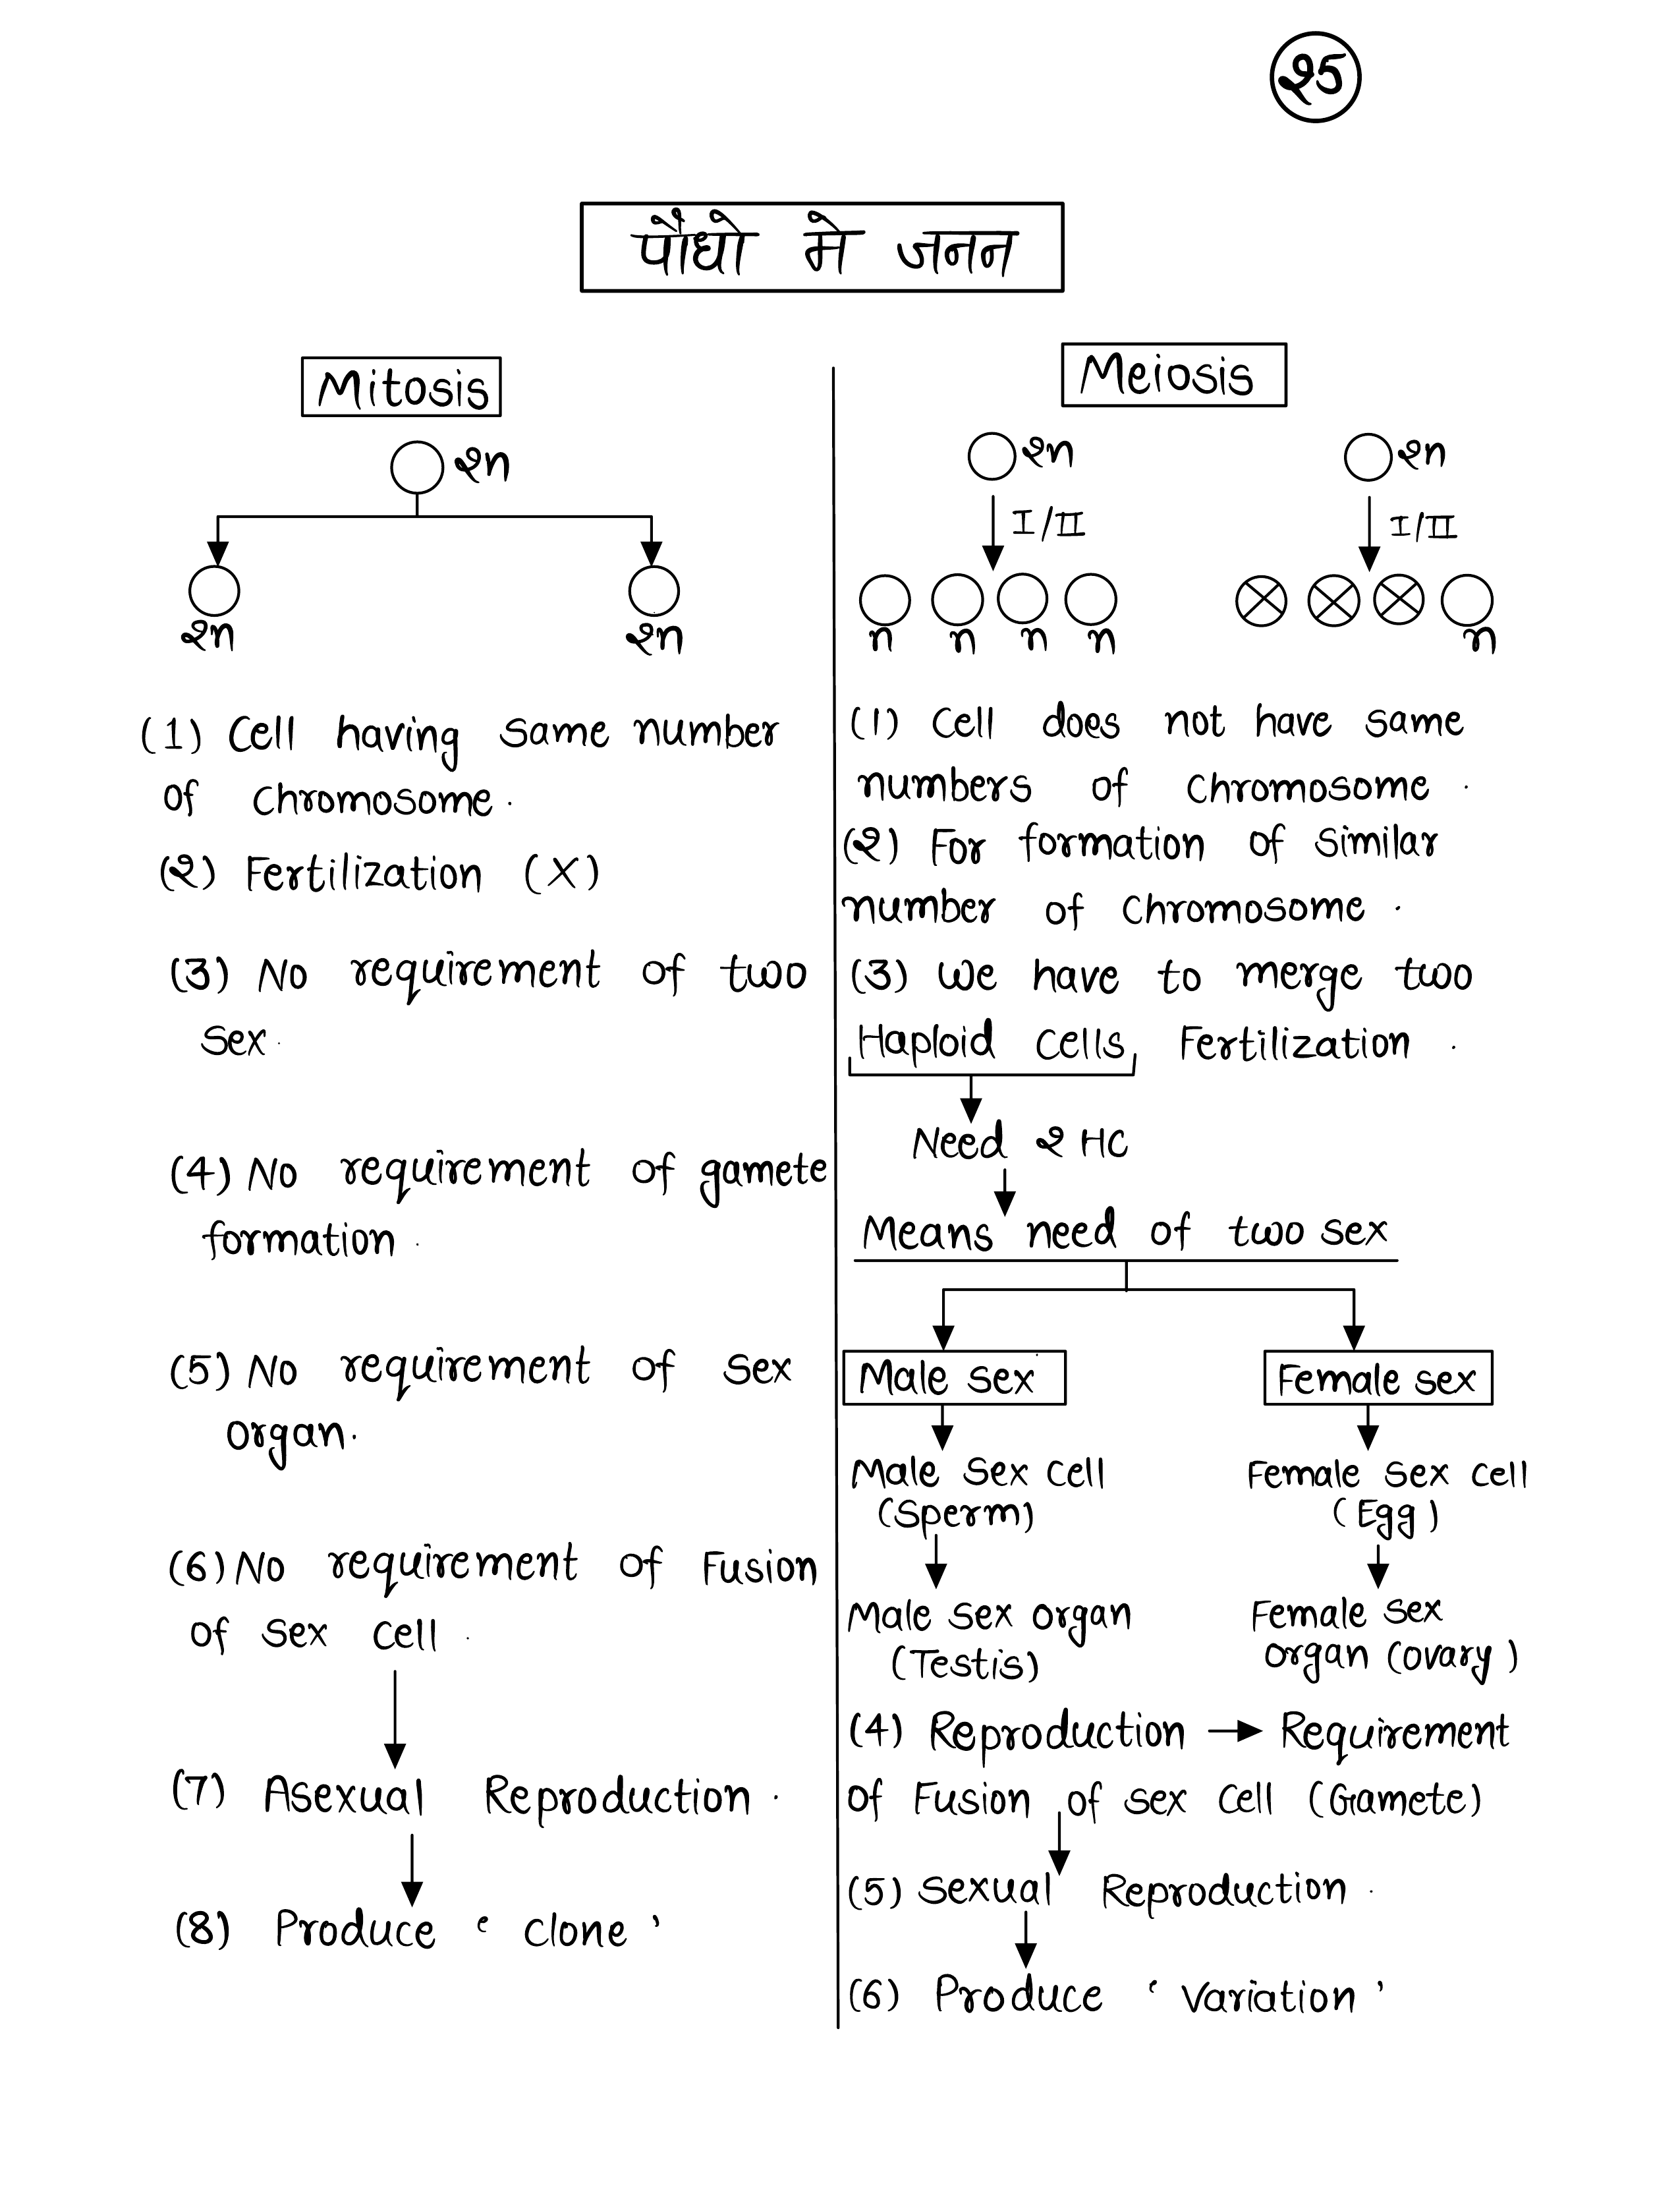 25
पौधो मे जनन
Mitosis
2n
2n 2n
(1) Cell having same number
of chromosome.
(2) Fertilization (X)
(3) No requirement of two
sex.
(4) No requirement of gamete
formation.
(5) No requirement of sex
organ.
(6) No requirement of Fusion
of sex cell.
(7) Asexual Reproduction.
(8) Produce ‘ clone ’
Meiosis
2n 2n
I/II I/II
n n n n n
(1) Cell does not have same
numbers of chromosome.
(2) For formation of similar
number of chromosome.
(3) we have to merge two
Haploid cells, Fertilization.
Need 2 HC
Means need of two sex
Male sex Female sex
Male sex cell Female sex cell
(Sperm) (Egg)
Male sex organ Female sex
(Testis) organ (ovary)
(4) Reproduction → Requirement
of Fusion of sex cell (Gamete)
(5) sexual Reproduction.
(6) Produce ‘ Variation ’